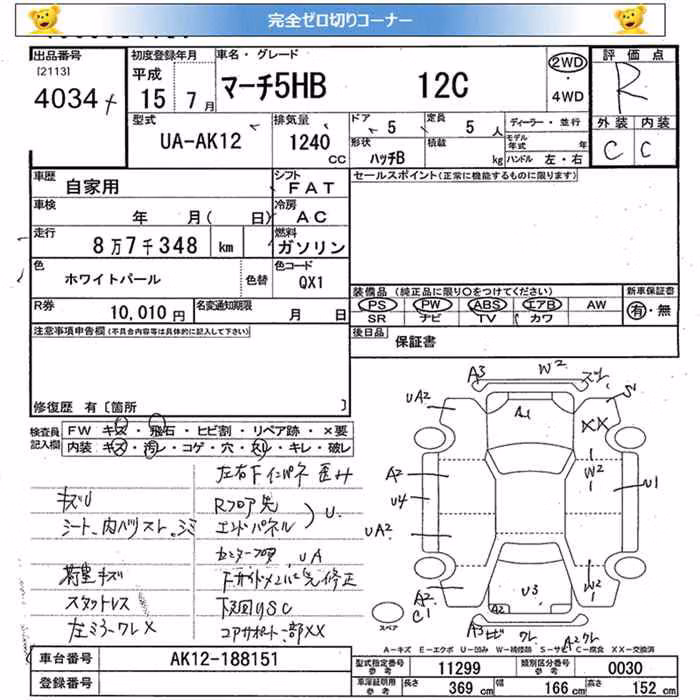 完全ゼロ切りコーナー
出品番号
[2113]
4034
初度登録年月
平成
15 7月
車名・グレード
マーチ5HB 12C
2WD
・
4WD
評価点
R
型式
UA-AK12
排気量
1240
CC
ドア
5
定員
5 人
形状
ハッチB
積載
kg
ディーラー・並行
モデル年式 年
ハンドル 左・右
外装 内装
C C
車歴
自家用
シフト
FAT
セールスポイント(正常に機能するものに限ります)
車検
年 月( 日)
冷房
AC
走行
8万7千348 km
燃料
ガソリン
色
ホワイトパール
色替
色コード
QX1
R券
10,010円
名変通知期限
月 日
装備品 (純正品に限り〇をつけてください)
PS PW ABS エアB AW
SR ナビ TV カワ
新車保証書
有・無
後日品
保証書
注意事項申告欄(不具合内容等は具体的に記入して下さい)
修復歴 有〔箇所 〕
検査員記入欄
FW キズ・飛石・ヒビ割・リペア跡・×要
内装・キズ・汚レ・コゲ・穴・スレ・キレ・破レ
左右Fインパネ 歪み
キズU
Rフロア先
エンドパネル
U.
センターフロア UA
荷室キズ
スタットレス
下回りSC
左ミラーワレX
コアサポート一部XX
A3
W2
UA2
A1
XX
A2
W2
U4
U1
UA2
U3
W2
A2
C1
A2
A3
A2
スペア
A-キズ E-エクボ U-凹み W-補修跡 S-サビ C-腐食 XX-交換済
車台番号
AK12-188151
登録番号
型式指定番号
11299
類別区分番号
0030
車深証明用参考
長さ 369 cm
幅 166 cm
高さ 152 cm